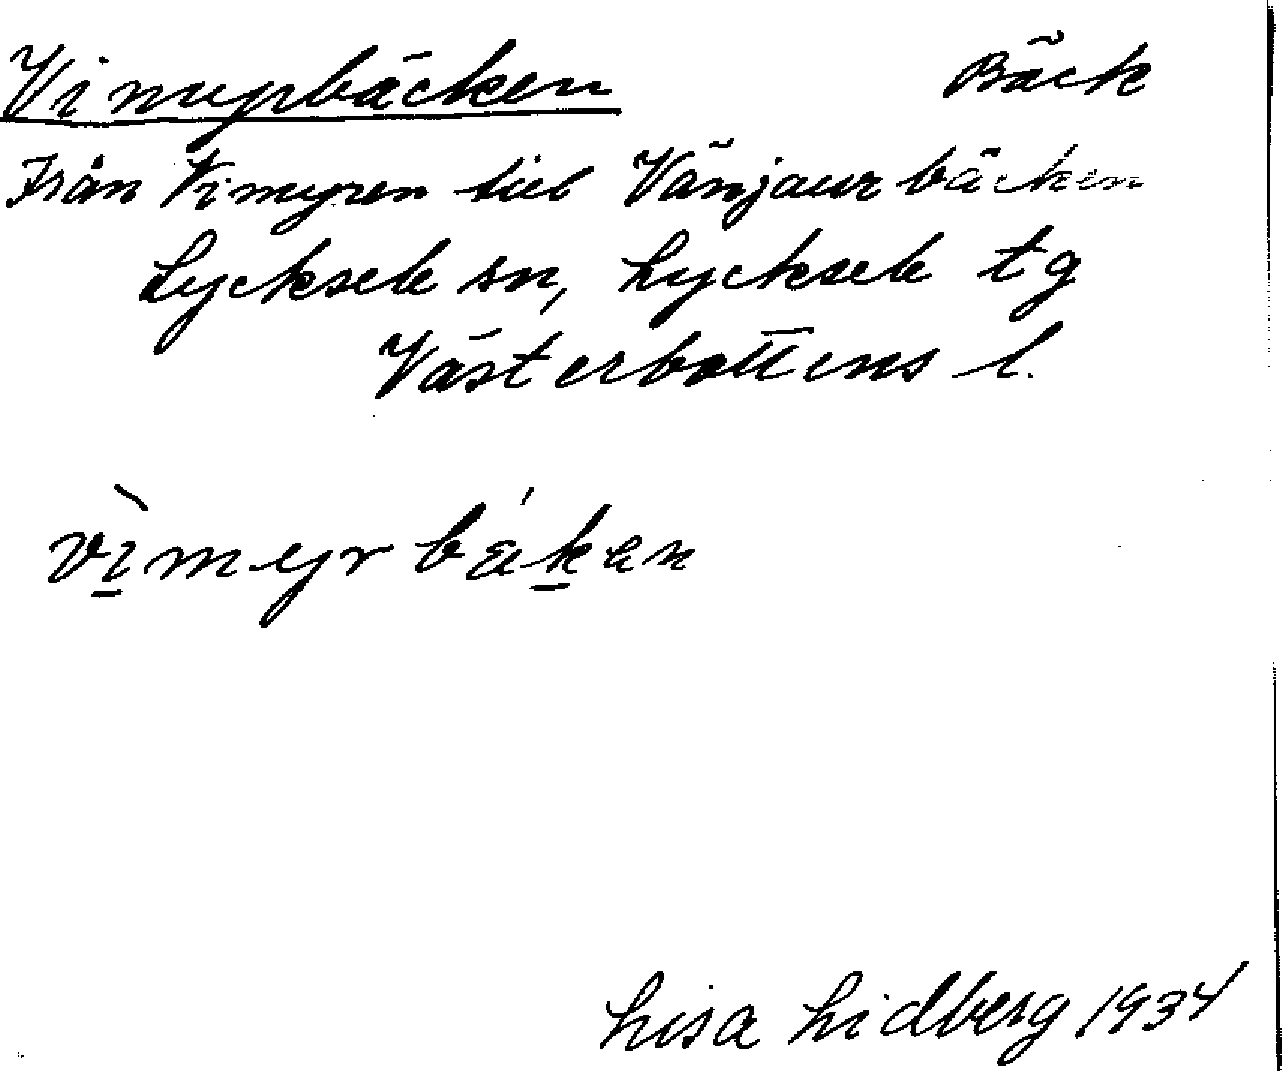 Vimyrbäcken Bäck
Från Vimyren till Vänjaurbäcken
Lycksele sn, Lycksele tg
Västerbottens l.
vìmyrbákan
Lisa Lidberg 1934